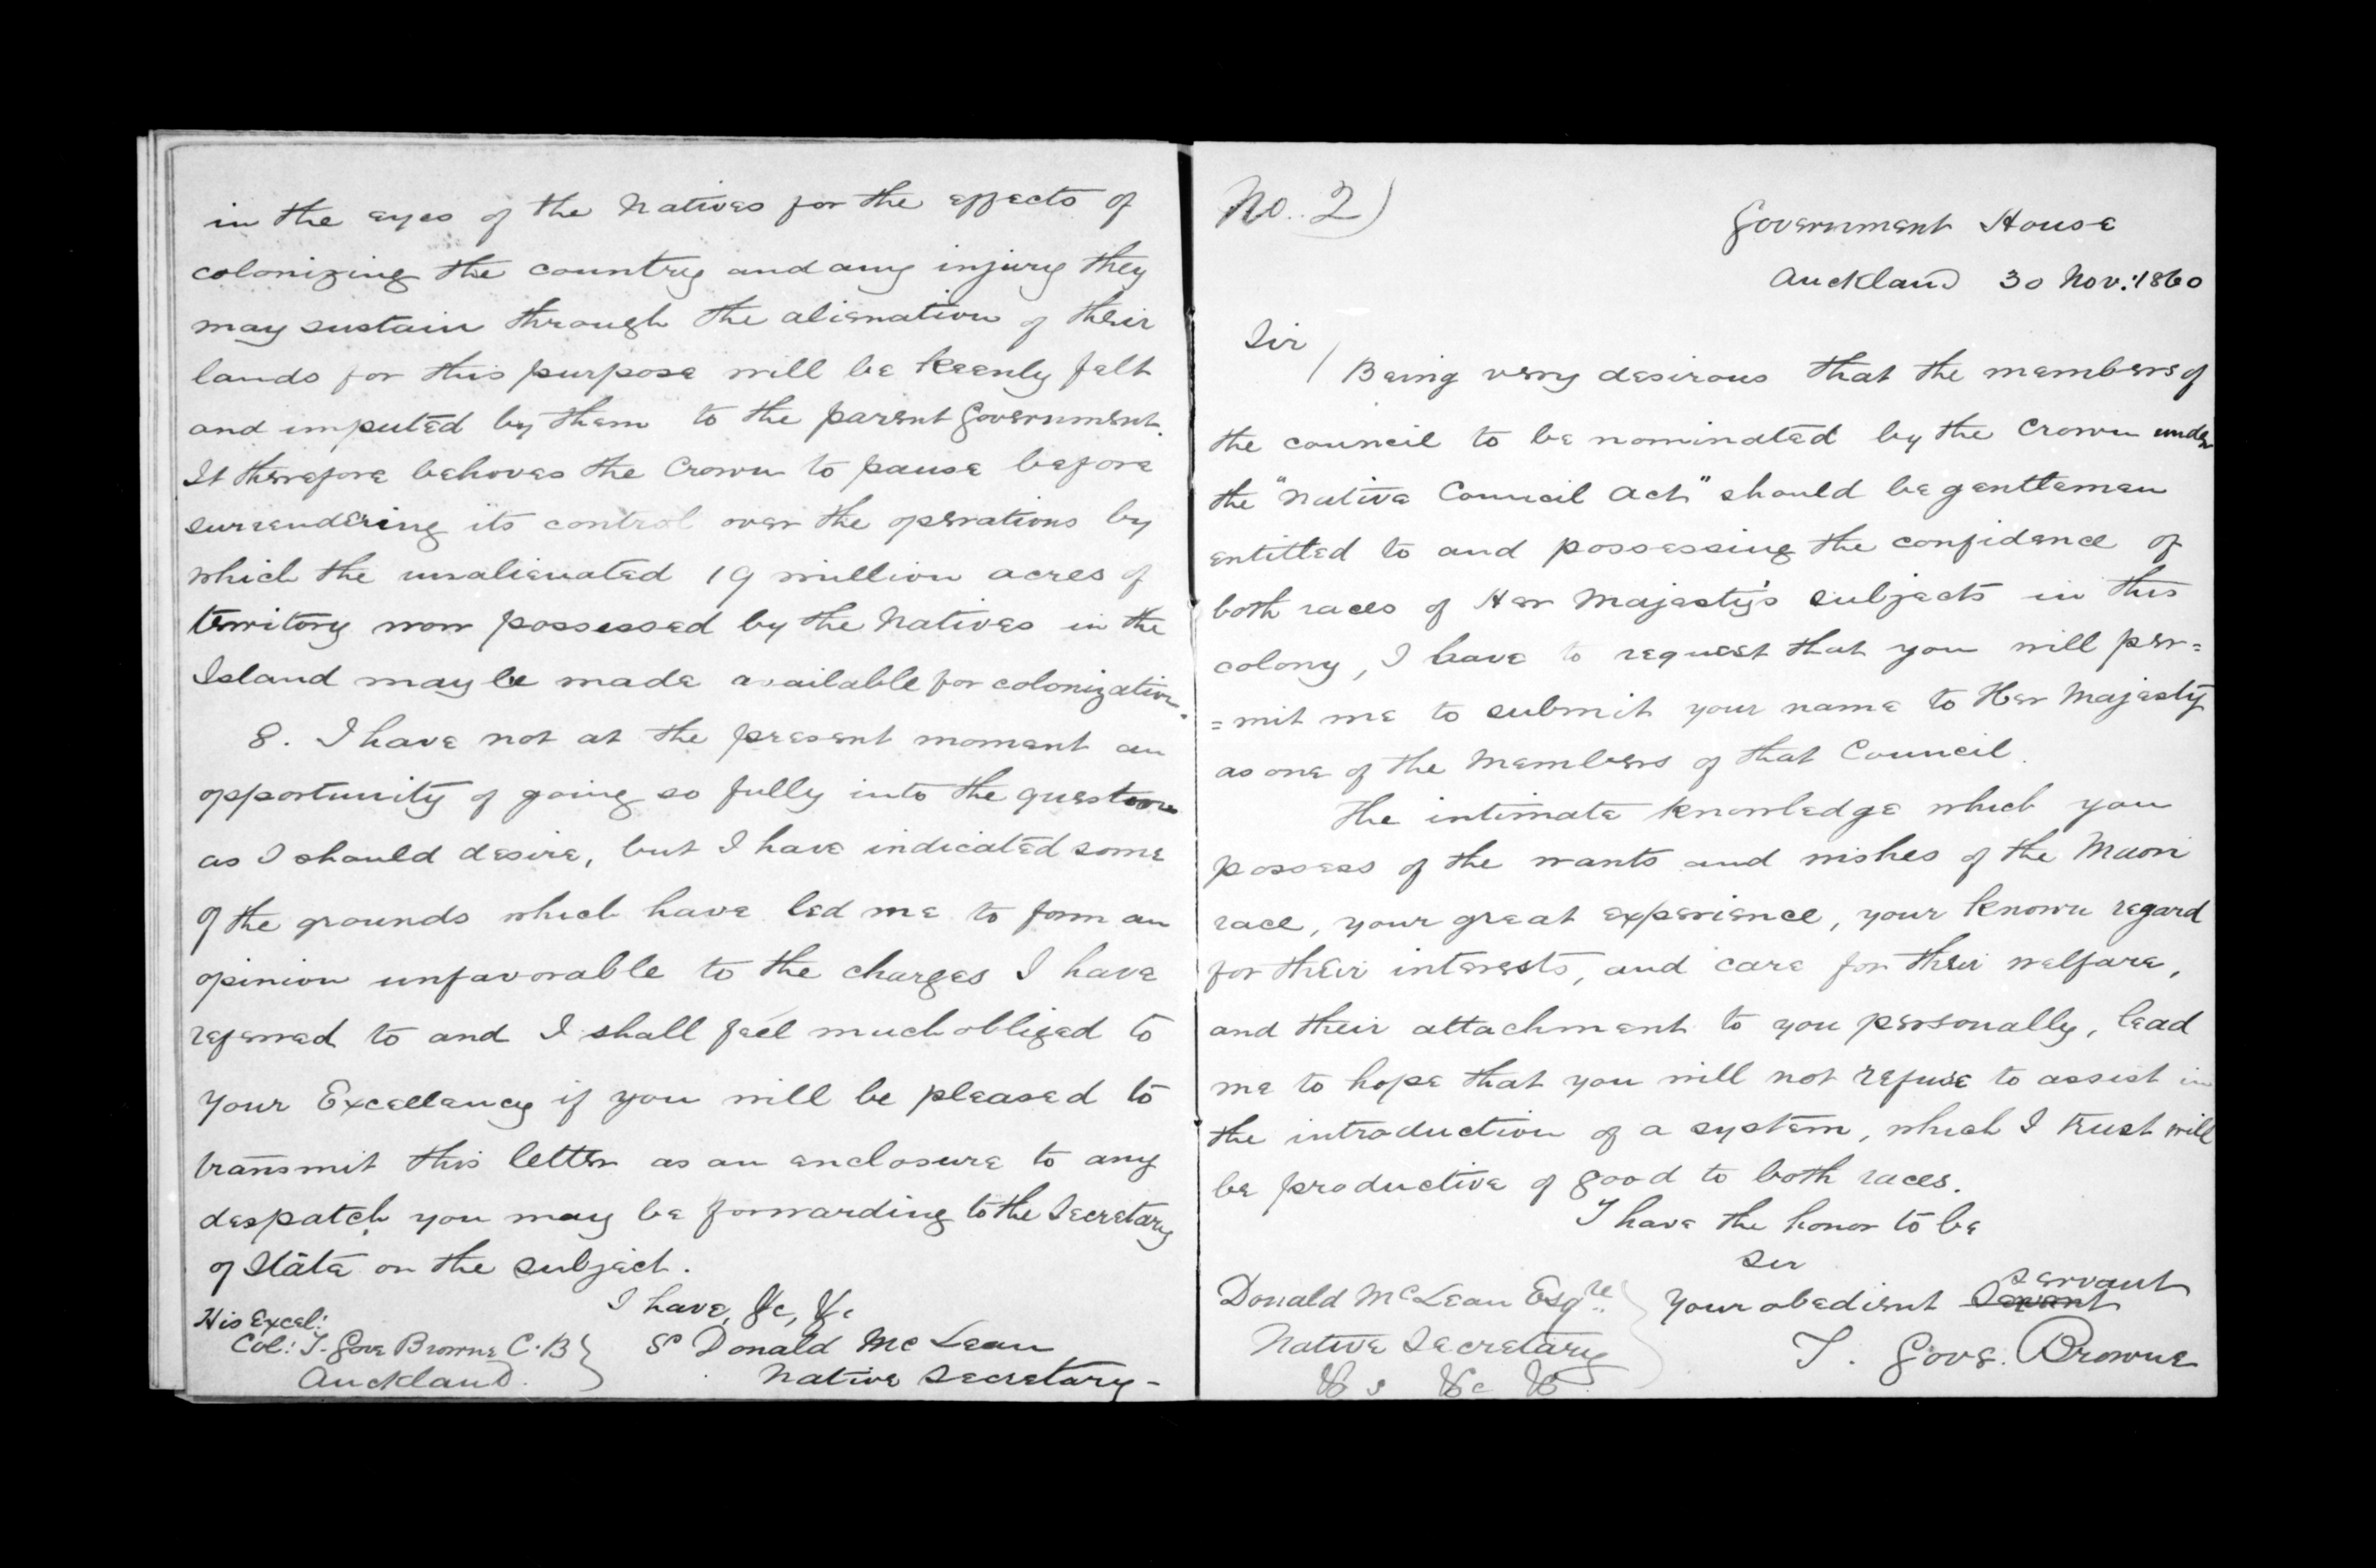 in the eyes of the Natives for the effects of
colonizing the country and any injury they
may sustain through the alienation of their
lands for this purpose will be keenly felt
and imputed by them to the parent Government.
It therefore behoves the Crown to pause before
surrendering its control over the operations by
which the unalienated 19 million acres of
territory now possessed by the Natives in the
Island may be made available for colonization.
8. I have not at the present moment an
opportunity of going so fully into the question
as I should desire, but I have indicated some
of the grounds which have led me to form an
opinion unfavorable to the charges I have
referred to and I shall feel much obliged to
Your Excellency if you will be pleased to
transmit this letter as an enclosure to any
despatch you may be forwarding to the Secretary
of State on the subject.
I have, &c, &c
His Excel:
Col: T. Gore Browne C.B
Auckland.
Sd Donald McLean
Native Secretary -
No. 2)
Government House
Auckland 30 Nov. 1860
Sir
Being very desirous that the members of
the council to be nominated by the Crown under
the "Native Council Act" should be gentlemen
entitled to and possessing the confidence of
both races of Her Majesty's subjects in this
colony, I have to request that you will per=
=mit me to submit your name to Her Majesty
as one of the Members of that Council.
The intimate knowledge which you
possess of the wants and wishes of the Maori
race, your great experience, your known regard
for their interests, and care for their welfare,
and their attachment to you personally, lead
me to hope that you will not refuse to assist in
the introduction of a system, which I trust will
be productive of good to both races.
I have the honor to be
Sir
Your obedient Servant servant
T. Gore Browne
Donald McLean Esqre.
Native Secretary
&c &c &c